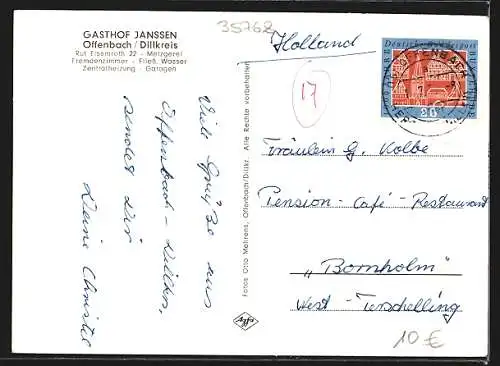 GASTHOF JANSSEN
Offenbach/Dillkreis
Ruf Eisemroth 22 - Metzgerei
Fremdenzimmer - Fließ. Wasser
Zentralheizung - Garagen
35768
Holland
Deutsche Bundespost
20
17
Viele Grüße aus
Offenbach-Dillkr.
sendet Dir
Deine Christel
Fotos Otto Mehrens, Offenbach/Dillkr. Alle Rechte vorbehalten
Fräulein G. Kolbe
Pension - Café - Restaurant
"Bornholm"
West - Terschelling
10 €